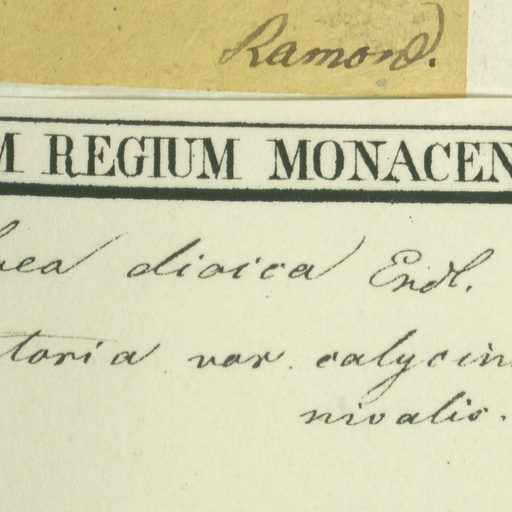 Ramond.
M REGIUM MONACEN
dioica Endl.
var. calycin
nivalis.